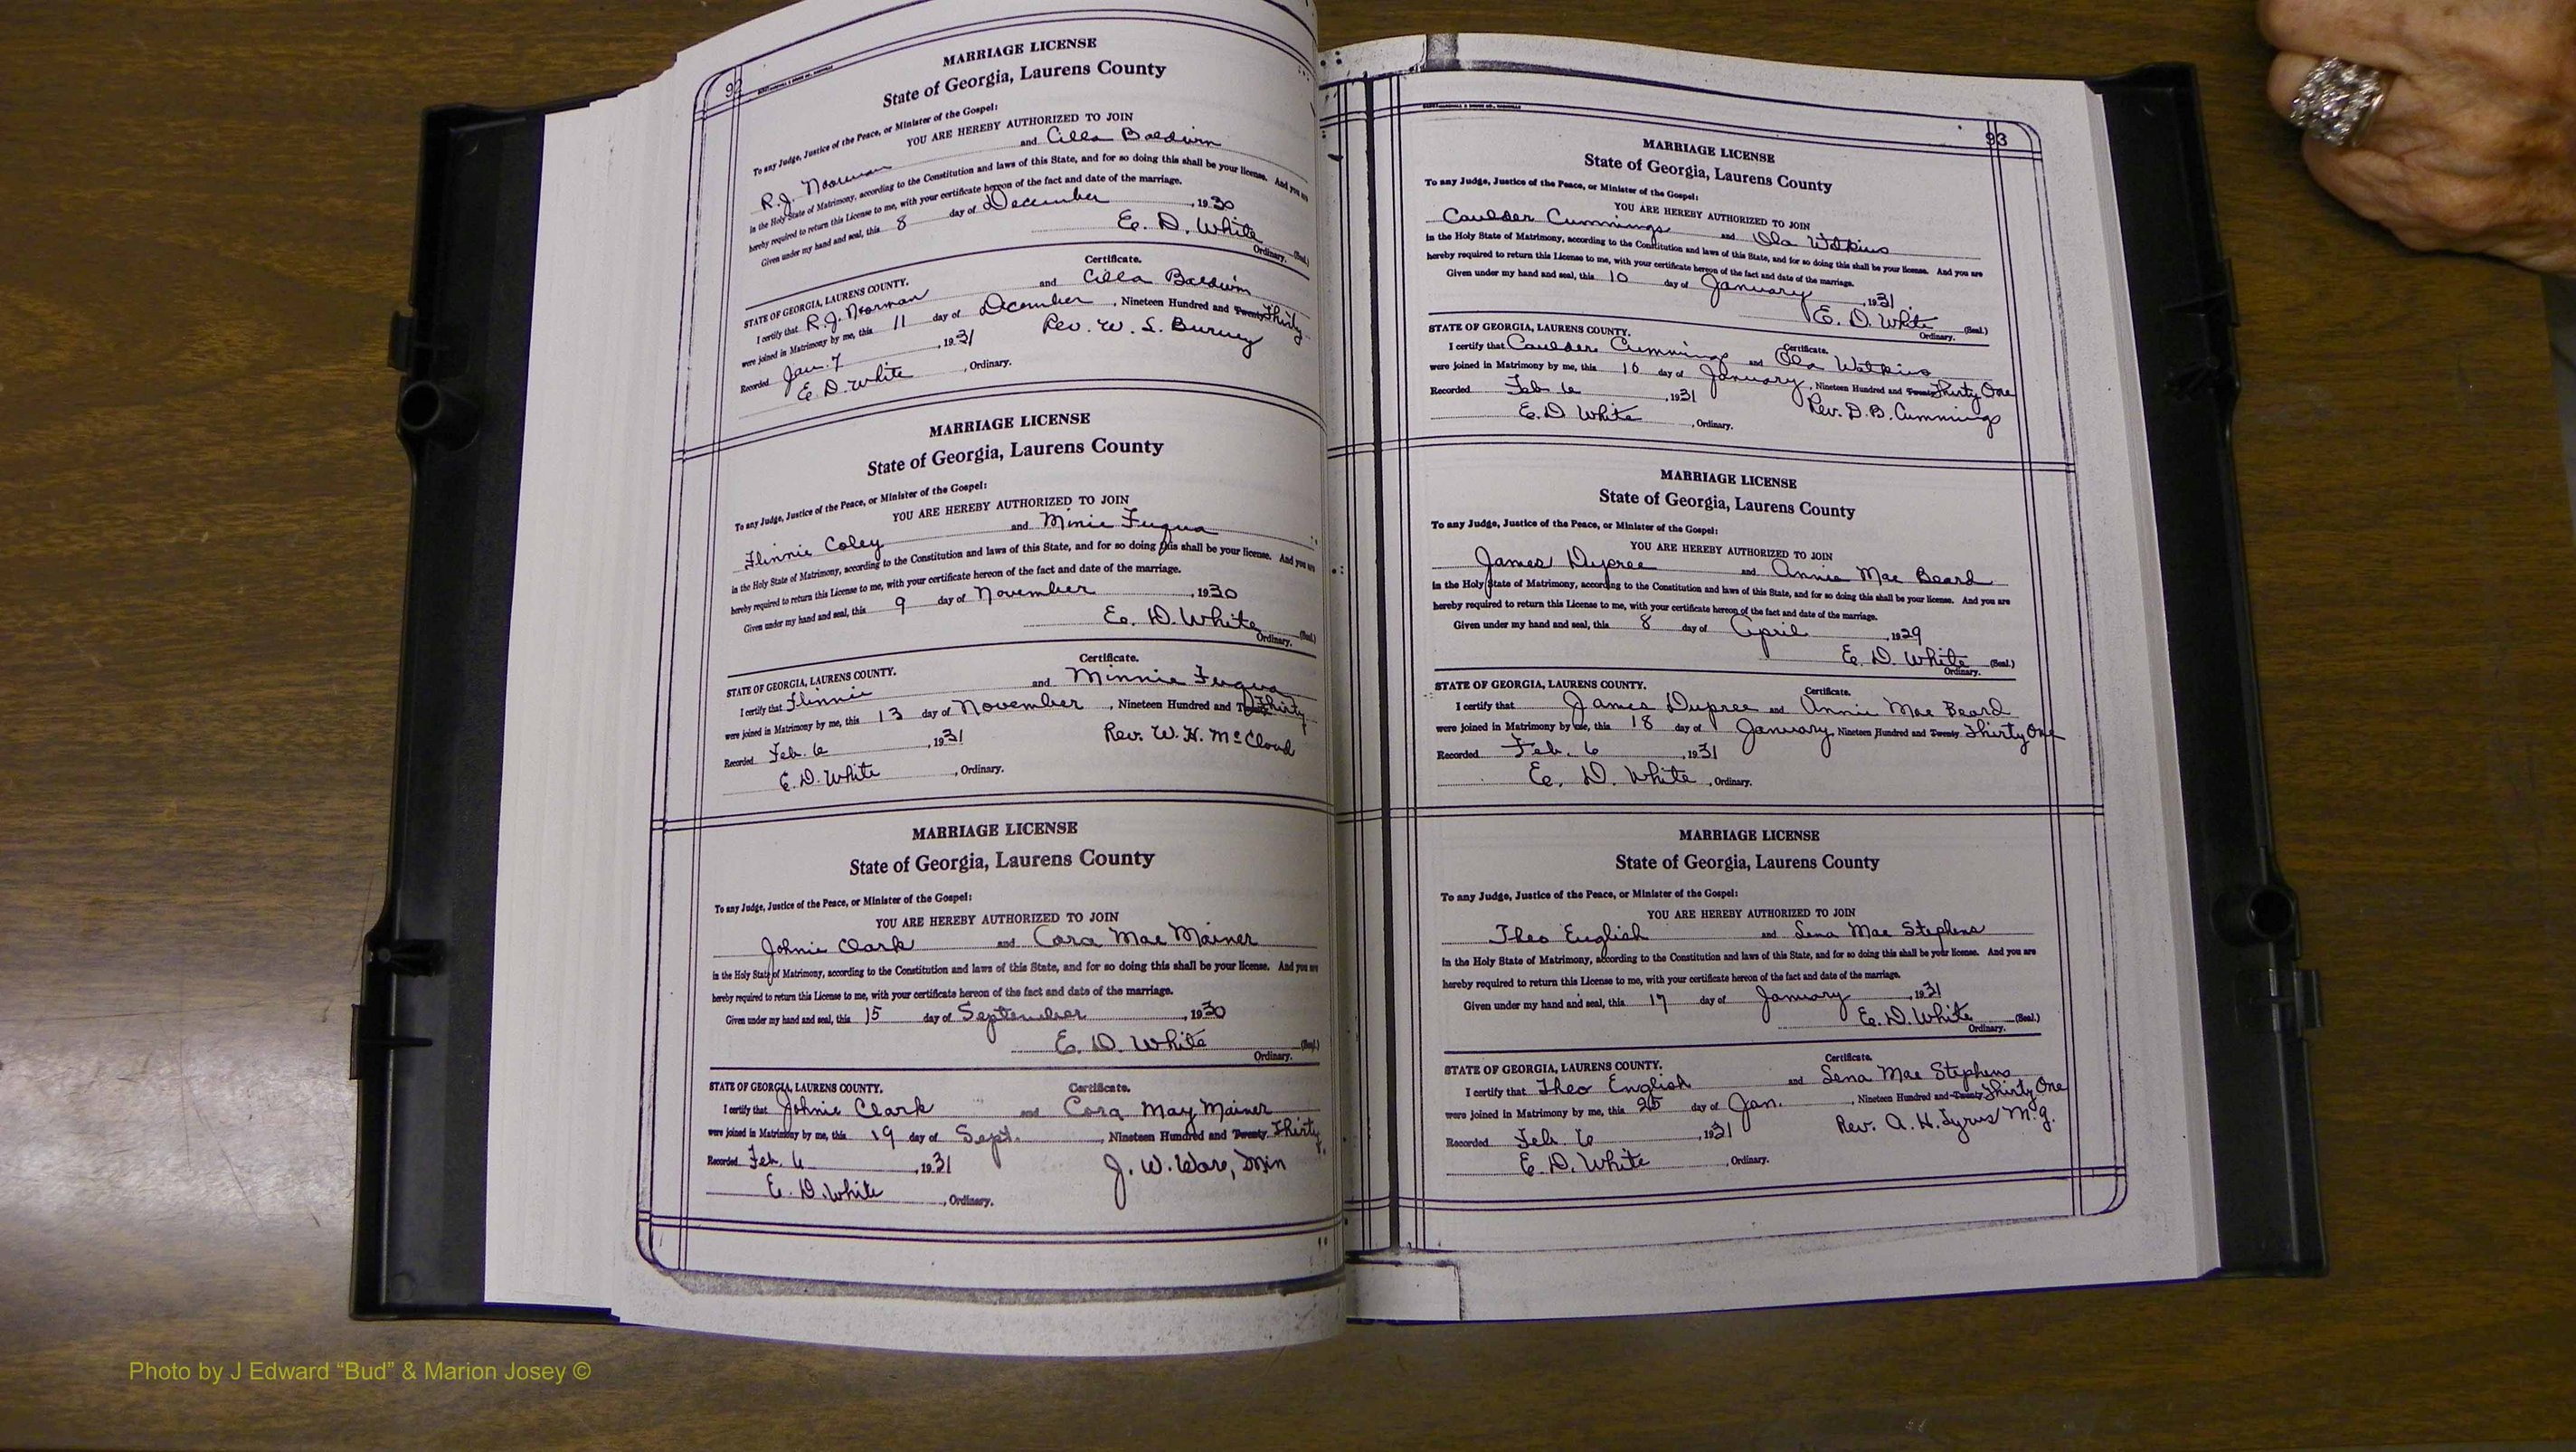 92
MARRIAGE LICENSE
State of Georgia, Laurens County
To any Judge, Justice of the Peace, or Minister of the Gospel:
YOU ARE HEREBY AUTHORIZED TO JOIN
R.J. Noorman and Cilla Baldwin
in the Holy State of Matrimony, according to the Constitution and laws of this State, and for so doing this shall be your license. And you are
hereby required to return this License to me, with your certificate hereon of the fact and date of the marriage.
Given under my hand and seal, this 8 day of December, 1930
E. D. White (Seal.)
Ordinary.
Certificate.
STATE OF GEORGIA, LAURENS COUNTY.
I certify that R.J. Noorman and Cilla Baldwin
were joined in Matrimony by me, this 11 day of December, Nineteen Hundred and Twenty Thirty
Recorded Jan. 7, 1931 Rev. W. S. Burney
E. D. White, Ordinary.
MARRIAGE LICENSE
State of Georgia, Laurens County
To any Judge, Justice of the Peace, or Minister of the Gospel:
YOU ARE HEREBY AUTHORIZED TO JOIN
Flinnie Coley and Minie Fuqua
in the Holy State of Matrimony, according to the Constitution and laws of this State, and for so doing this shall be your license. And you are
hereby required to return this License to me, with your certificate hereon of the fact and date of the marriage.
Given under my hand and seal, this 9 day of November, 1930
E. D. White (Seal.)
Ordinary.
Certificate.
STATE OF GEORGIA, LAURENS COUNTY.
I certify that Flinnie and Minnie Fuqua
were joined in Matrimony by me, this 13 day of November, Nineteen Hundred and Thirty
Recorded Feb. 6, 1931 Rev. W. H. McCloud
E. D. White, Ordinary.
MARRIAGE LICENSE
State of Georgia, Laurens County
To any Judge, Justice of the Peace, or Minister of the Gospel:
YOU ARE HEREBY AUTHORIZED TO JOIN
Johnie Clark and Cora Mae Mainer
in the Holy State of Matrimony, according to the Constitution and laws of this State, and for so doing this shall be your license. And you are
hereby required to return this License to me, with your certificate hereon of the fact and date of the marriage.
Given under my hand and seal, this 15 day of September, 1930
E. D. White (Seal.)
Ordinary.
STATE OF GEORGIA, LAURENS COUNTY. Certificate.
I certify that Johnie Clark and Cora May Mainer
were joined in Matrimony by me, this 19 day of Sept., Nineteen Hundred and Twenty Thirty
Recorded Feb. 6, 1931 J. W. Ware, Min
E. D. White, Ordinary.
93
MARRIAGE LICENSE
State of Georgia, Laurens County
To any Judge, Justice of the Peace, or Minister of the Gospel:
YOU ARE HEREBY AUTHORIZED TO JOIN
Caulder Cummings and Ola Watkins
in the Holy State of Matrimony, according to the Constitution and laws of this State, and for so doing this shall be your license. And you are
hereby required to return this License to me, with your certificate hereon of the fact and date of the marriage.
Given under my hand and seal, this 10 day of January, 1931
E. D. White (Seal.)
Ordinary.
STATE OF GEORGIA, LAURENS COUNTY. Certificate.
I certify that Caulder Cummings and Ola Watkins
were joined in Matrimony by me, this 10 day of January, Nineteen Hundred and Twenty Thirty One
Recorded Feb 6, 1931 Rev. D. B. Cummings
E. D. White, Ordinary.
MARRIAGE LICENSE
State of Georgia, Laurens County
To any Judge, Justice of the Peace, or Minister of the Gospel:
YOU ARE HEREBY AUTHORIZED TO JOIN
James Dupree and Annie Mae Beard
in the Holy State of Matrimony, according to the Constitution and laws of this State, and for so doing this shall be your license. And you are
hereby required to return this License to me, with your certificate hereon of the fact and date of the marriage.
Given under my hand and seal, this 8 day of April, 1929
E. D. White (Seal.)
Ordinary.
STATE OF GEORGIA, LAURENS COUNTY. Certificate.
I certify that James Dupree and Annie Mae Beard
were joined in Matrimony by me, this 18 day of January, Nineteen Hundred and Twenty Thirty One
Recorded Feb. 6, 1931
E. D. White, Ordinary.
MARRIAGE LICENSE
State of Georgia, Laurens County
To any Judge, Justice of the Peace, or Minister of the Gospel:
YOU ARE HEREBY AUTHORIZED TO JOIN
Theo English and Lena Mae Stephens
in the Holy State of Matrimony, according to the Constitution and laws of this State, and for so doing this shall be your license. And you are
hereby required to return this License to me, with your certificate hereon of the fact and date of the marriage.
Given under my hand and seal, this 17 day of January, 1931
E. D. White (Seal.)
Ordinary.
Certificate.
STATE OF GEORGIA, LAURENS COUNTY.
I certify that Theo English and Lena Mae Stephens
were joined in Matrimony by me, this 25 day of Jan., Nineteen Hundred and Twenty Thirty One
Recorded Feb. 6, 1931 Rev. A. H. Tyrus M.G.
E. D. White, Ordinary.
Photo by J Edward “Bud” & Marion Josey ©